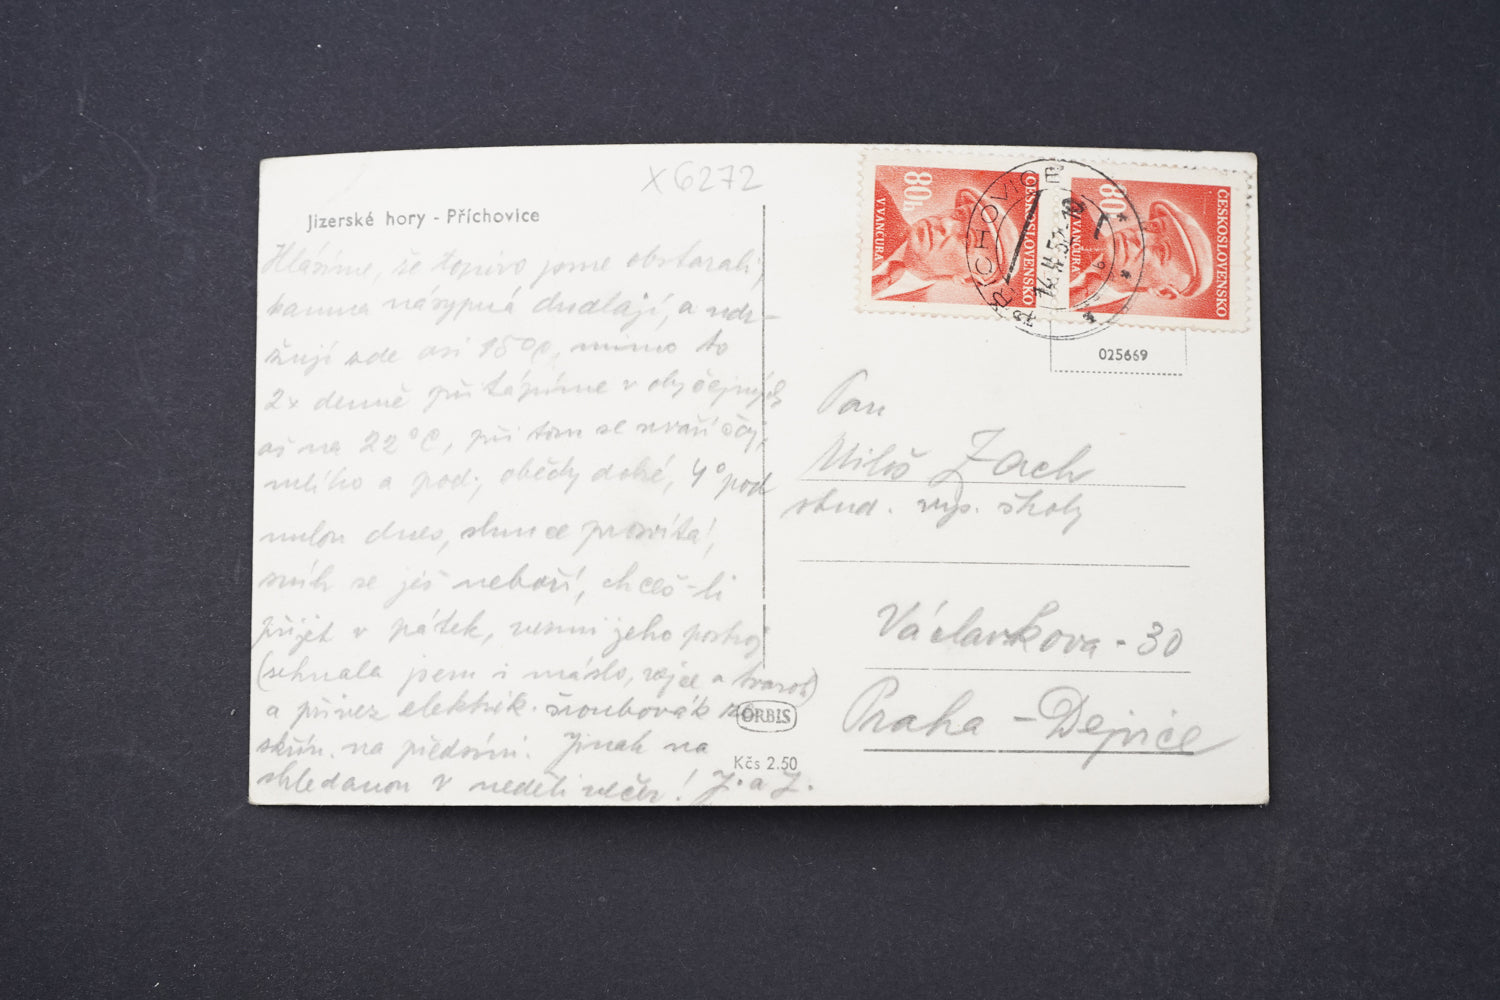 X 6272
Jizerské hory - Příchovice
Hlásíme, že topivo jsme obstarali,
kamna násypná dudlají, a udr-
žují zde asi 15°C, mimo to
2x denně přitápíme v obyčejných
až na 22°C, při tom se uvaří čaj,
mlíko a pod., obědy dobré, 4° pod
nulou dnes, slunce prosvítá,
sníh se již neboří, chceš-li
přijet v pátek, vezmi jeho postroj
(sehnala jsem i máslo, vejce a tvaroh)
a přivez elektrik. šroubovák ze
skřín. na předsíni. Jinak na
shledanou v neděli večer! J. a J.
ORBIS
Kčs 2.50
80h
V. VANČURA
ČESKOSLOVENSKO
80h
V. VANČURA
ČESKOSLOVENSKO
PŘÍCHOVICE
025669
Pan
Miloš Zach
stud. vys. školy
Václavkova - 30
Praha - Dejvice